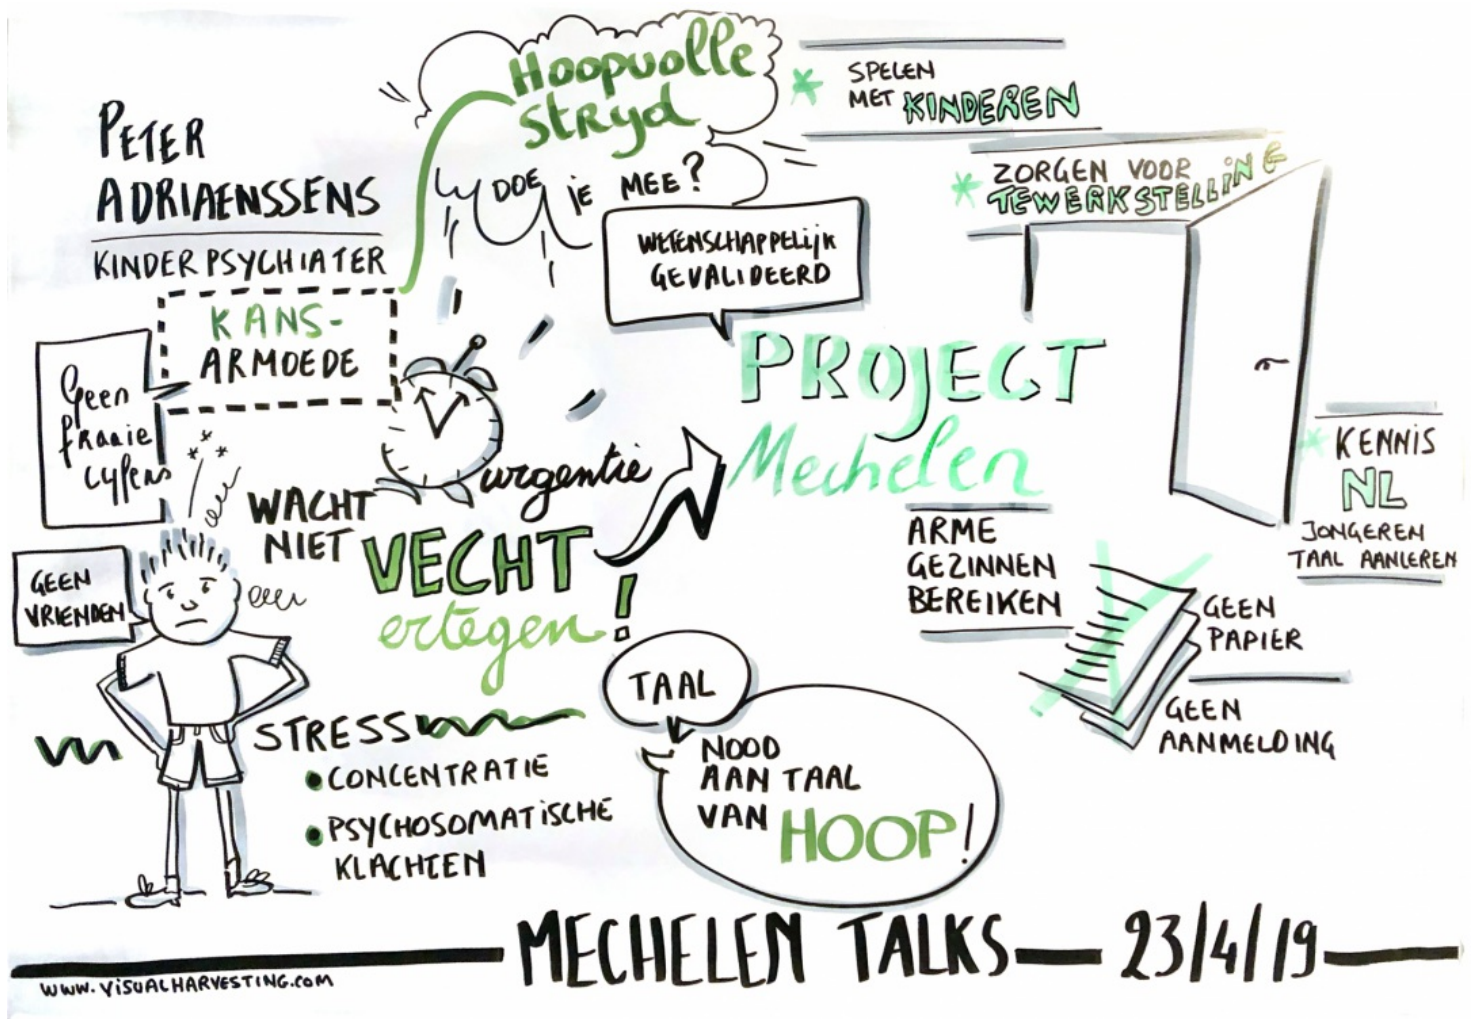 PETER
ADRIAENSSENS
KINDERPSYCHIATER
KANS-
ARMOEDE
Geen
fraaie
cyfers
GEEN
VRIENDEN
Hoopvolle
Stryd
DOE JE MEE?
WACHT
NIET
urgentie
VECHT
ertegen!
STRESS
• CONCENTRATIE
• PSYCHOSOMATISCHE
KLACHTEN
WETENSCHAPPELIJK
GEVALIDEERD
PROJECT
Mechelen
* SPELEN
MET KINDEREN
* ZORGEN VOOR
TEWERKSTELLING
* KENNIS
NL
JONGEREN
TAAL AANLEREN
ARME
GEZINNEN
BEREIKEN
GEEN
PAPIER
GEEN
AANMELDING
TAAL
NOOD
AAN TAAL
VAN HOOP!
MECHELEN TALKS — 23/4/19
www.VISUALHARVESTING.COM